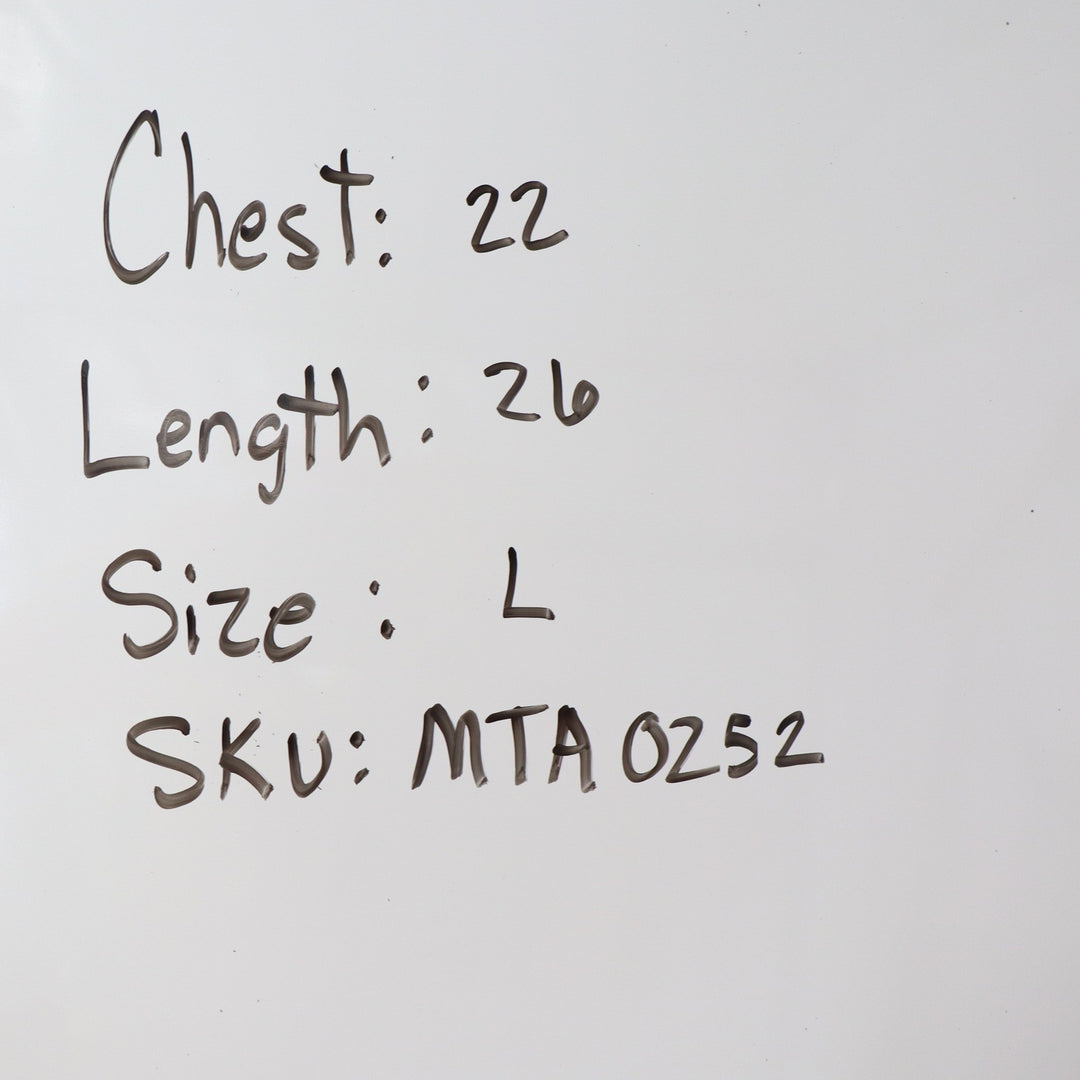 Chest: 22
Length: 26
Size: L
SKU: MTA 0252